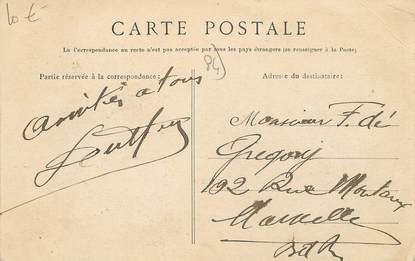 10 €
CARTE POSTALE
La Correspondance au recto n'est pas acceptée par tous les pays étrangers (se renseigner à la Poste)
Partie réservée à la correspondance:
Adresse du destinataire:
84)
amitiés a tous
Monsieur F. de
Gregory
192 Rue
Marseille
BdR